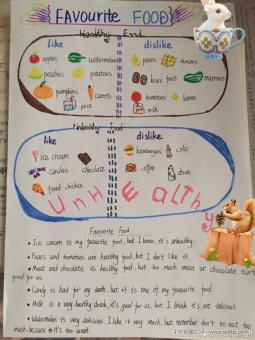 FAVOURITE FOOD
Healthy Food
like
dislike
apples
watermelons
pears
peaches
potatoes
kiwi fruit
pumpkins
carrots
tomatoes
lemon
juice
milk
Unhealthy Food
like
dislike
ice cream
hamburgers
cola
candies
chocolate
coffee
drink
fried chicken
UnHEALthy
Favourite Food
• Ice cream is my favourite food, but I know it's unhealthy.
• Pears and tomatoes are healthy food, but I don't like it.
• Meat and chocolate is healthy food, but too much meat or chocolate isn't
good for us.
• Candy is bad for my teeth, but it is one of my favourite food
• Milk is a very healthy drink, it's good for us. but I think it's not delicious.
• Watermelon is very delicious. I like it very much, but remember don't to eat too
much, because it's too sweet.